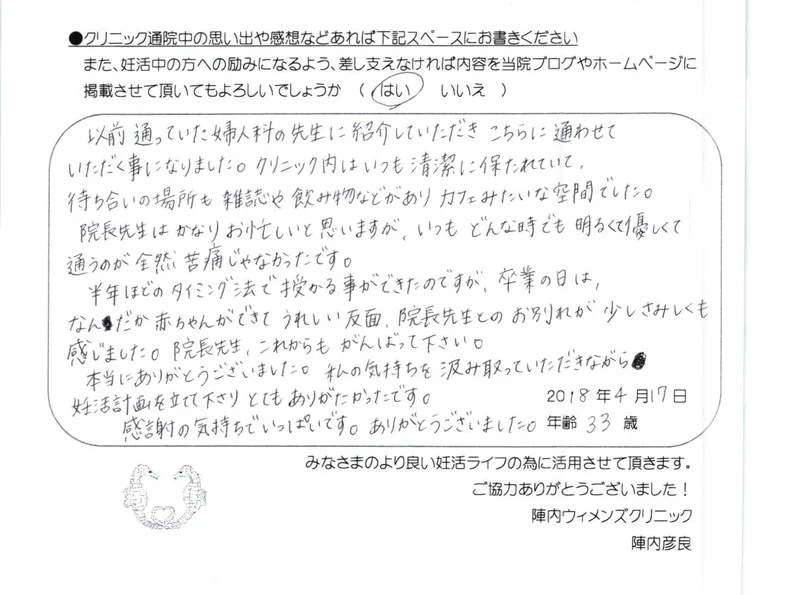 ●クリニック通院中の思い出や感想などあれば下記スペースにお書きください
また、妊活中の方への励みになるよう、差し支えなければ内容を当院ブログやホームページに
掲載させて頂いてもよろしいでしょうか （ はい いいえ ）
以前通っていた婦人科の先生に紹介していただき こちらに通わせて
いただく事になりました。クリニック内はいつも清潔に保たれていて、
待ち合いの場所も雑誌や飲み物などがあり カフェみたいな空間でした。
院長先生は かなり お忙しいと思いますが、いつも どんな時でも 明るくて優しくて
通うのが 全然 苦痛じゃなかったです。
半年ほどの タイミング法で 授かる事ができたのですが、卒業の日は、
なんだか 赤ちゃんができて うれしい反面、院長先生との お別れが 少しさみしくも
感じました。院長先生、これからも がんばって下さい。
本当にありがとうございました。私の気持ちを 汲み取っていただきながら
妊活計画を立て下さり とても ありがたかったです。
2018年4月17日
感謝の気持ちでいっぱいです。ありがとうございました。
年齢 33 歳
みなさまのより良い妊活ライフの為に活用させて頂きます。
ご協力ありがとうございました！
陣内ウィメンズクリニック
陣内彦良